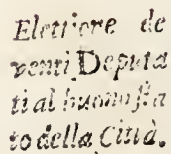 Elettione de
venti Deputa
ti al buono sta
to della Città.